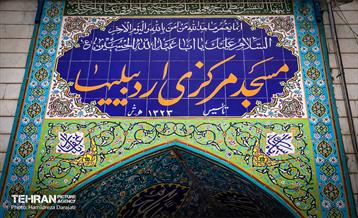 إنما یعمر مساجد الله من آمن بالله والیوم الآخر
السلام علیک یا ابا عبدالله الحسین (ع)
مسجد مرکزی اردبیلیها
تاسیس ۱۳۲۳ هرش
TEHRAN PICTURE AGENCY
Photo: Hamidreza Darajati